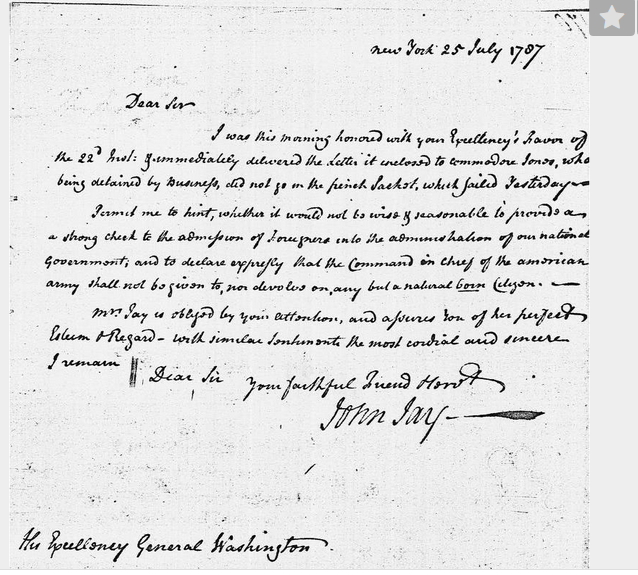 new York 25 July 1787
Dear Sir
I was this morning honored with your Excellency's Favor of
the 22d Inst: & immediately delivered the Letter it enclosed to commodore Jones, who
being detained by Business, did not go in the french Packet, which sailed Yesterday—
Permit me to hint, whether it would not be wise & seasonable to provide a
a strong check to the admission of Foreigners into the administration of our national
Government; and to declare expressly that the Command in chief of the american
army shall not be given to, nor devolve on, any but a natural born Citizen. —
Mrs. Jay is obliged by your attention, and assures You of her perfect
Esteem & Regard — with similar Sentiments the most cordial and sincere
I remain Dear Sir your faithful Friend & Servt
John Jay —
His Excellency General Washington